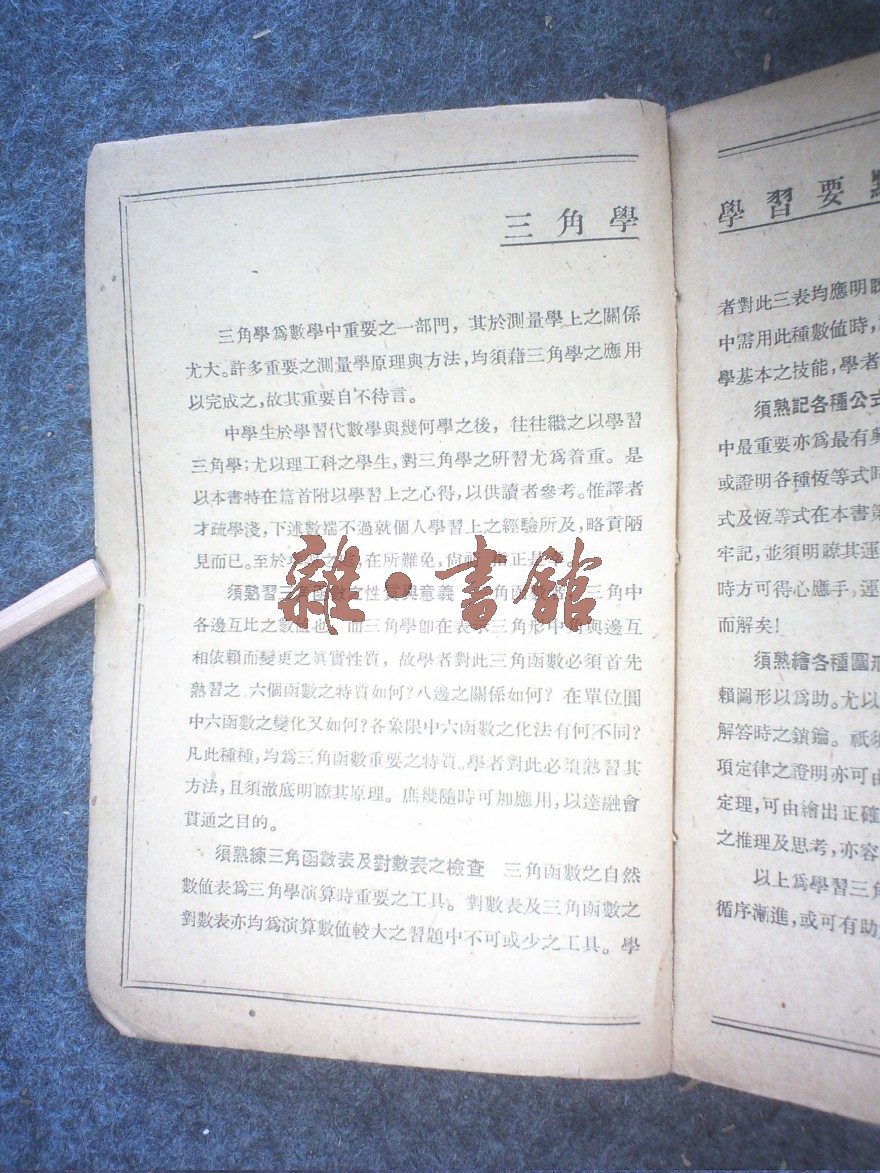 三角學
三角學爲數學中重要之一部門，其於測量學上之關係
尤大。許多重要之測量學原理與方法，均須藉三角學之應用
以完成之，故其重要自不待言。
中學生於學習代數學與幾何學之後，往往繼之以學習
三角學；尤以理工科之學生，對三角學之硏習尤爲着重。是
以本書特在篇首附以學習上之心得，以供讀者參考。惟譯者
才疏學淺，下述數端不過就個人學習上之經驗所及，略貢陋
見而已。至於在所難免，尙正
須熟習三角函數之性質與意義 角函數三角中
各邊互比之數値也而三角學卽在表示三角形中角與邊互
相依賴而變更之眞實性質，故學者對此三角函數必須首先
熟習之。六個函數之特質如何？八邊之關係如何？在單位圓
中六函數之變化又如何？各象限中六函數之化法有何不同？
凡此種種，均爲三角函數重要之特質。學者對此必須熟習其
方法，且須澈底明瞭其原理。庶幾隨時可加應用，以達融會
貫通之目的。
須熟練三角函數表及對數表之檢查 三角函數之自然
數値表爲三角學演算時重要之工具。對數表及三角函數之
對數表亦均爲演算數値較大之習題中不可或少之工具。學
雜·書館
學習要點
者對此三表均應明瞭
中需用此種數値時，
學基本之技能，學者
須熟記各種公式
中最重要亦爲最有興
或證明各種恆等式時
式及恆等式在本書第
牢記，並須明瞭其運
時方可得心應手，運
而解矣！
須熟繪各種圖形
賴圖形以爲助。尤以
解答時之鎖鑰。祇須
項定律之證明亦可由
定理，可由繪出正確
之推理及思考，亦容
以上爲學習三角
循序漸進，或可有助